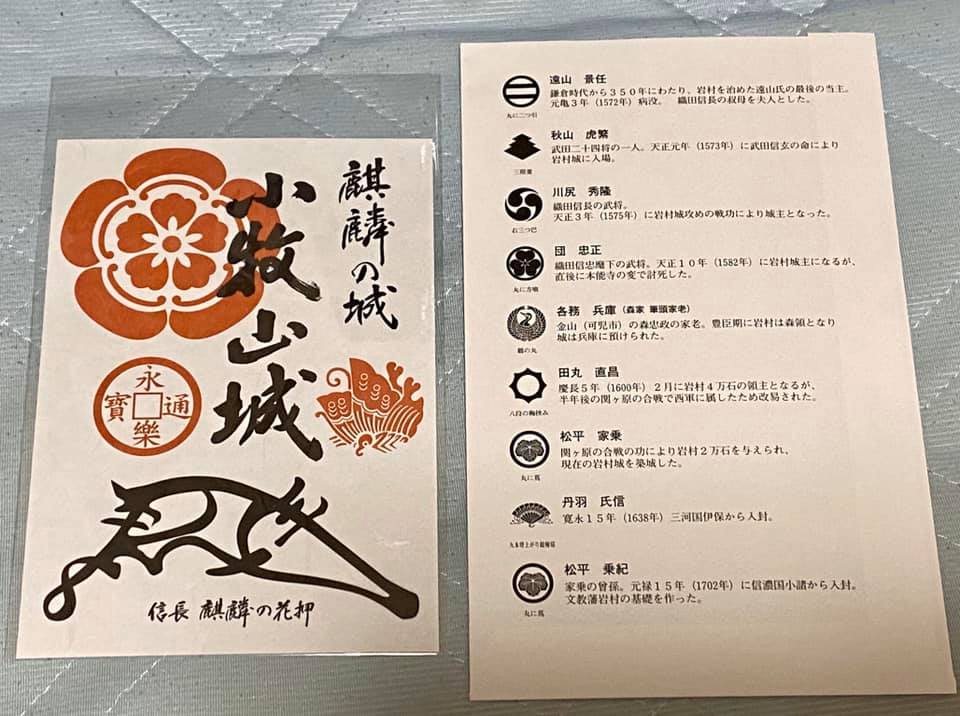 麒麟の城
小牧山城
永樂通寶
信長 麒麟の花押
遠山 景任
鎌倉時代から350年にわたり、岩村を治めた遠山氏の最後の当主。
元亀3年(1572年)病没。 織田信長の叔母を夫人とした。
丸に二つ引
秋山 虎繁
武田二十四将の一人。天正元年(1573年)に武田信玄の命により
岩村城に入場。
三階菱
川尻 秀隆
織田信長の武将。
天正3年(1575年)に岩村城攻めの戦功により城主となった。
右三つ巴
団 忠正
織田信忠麾下の武将。天正10年(1582年)に岩村城主になるが、
直後に本能寺の変で討死した。
丸に方喰
各務 兵庫(森家 筆頭家老)
金山(可児市)の森忠政の家老。豊臣期に岩村は森領となり
城は兵庫に預けられた。
鶴の丸
田丸 直昌
慶長5年(1600年)2月に岩村4万石の領主となるが、
半年後の関ヶ原の合戦で西軍に属したため改易された。
松平 家乗
関ヶ原の合戦の功により岩村2万石を与えられ、
現在の岩村城を築城した。
丸に蔦
丹羽 氏信
寛永15年(1638年)三河国伊保から入封。
松平 乗紀
家乗の曾孫。元禄15年(1702年)に信濃国小諸から入封。
文教藩岩村の基礎を作った。
丸に蔦